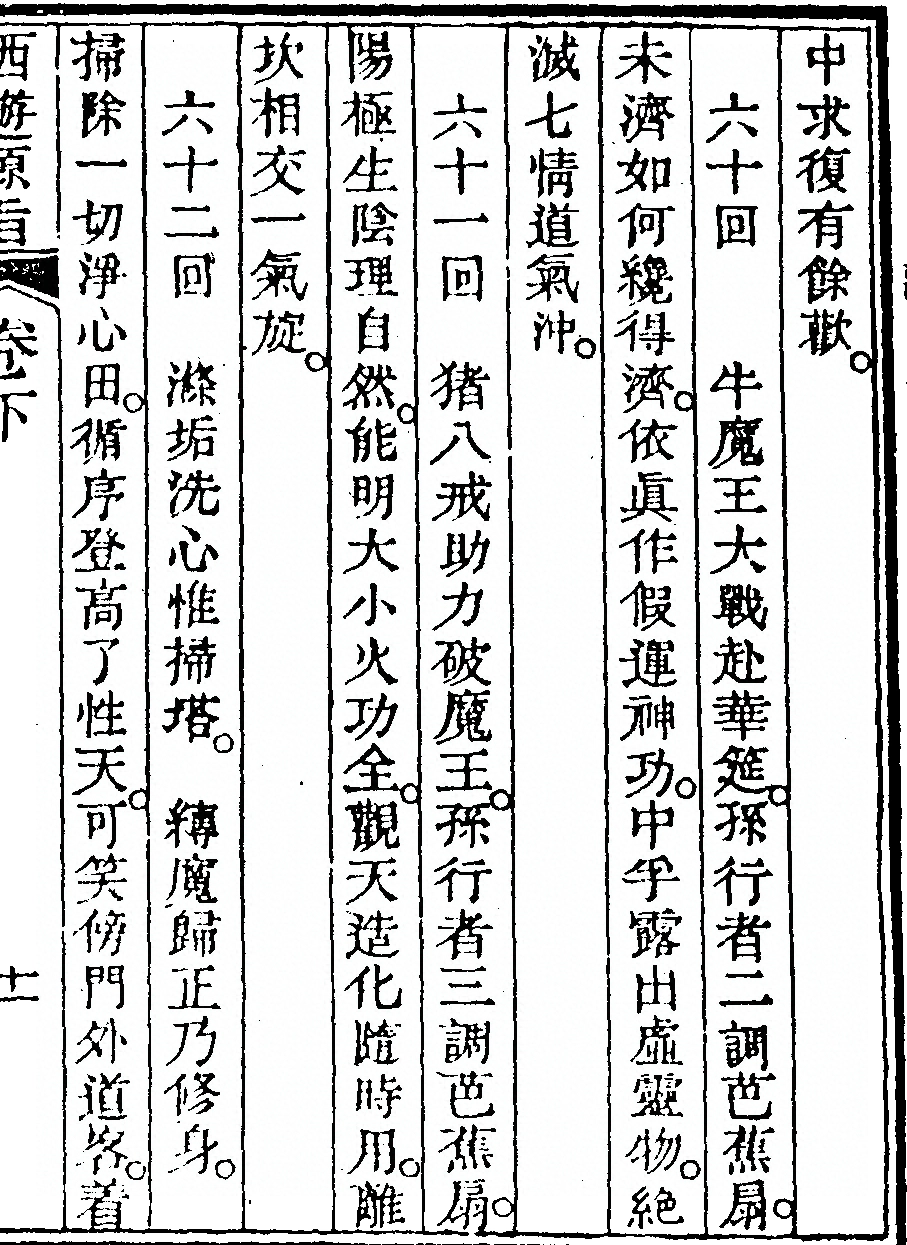 中求復有餘歡。
六十回　牛魔王大戰赴華筵。孫行者二調芭蕉扇。
未濟如何纔得濟。依眞作假運神功。中孚露出虛靈物。絕
滅七情道氣沖。
六十一回　猪八戒助力破魔王。孫行者三調芭蕉扇。
陽極生陰理自然。能明大小火功全。觀天造化隨時用。離
坎相交一氣旋。
六十二回　滌垢洗心惟掃塔。縛魔歸正乃修身。
掃除一切淨心田。循序登高了性天。可笑傍門外道客。着
西遊原旨　卷下　十一